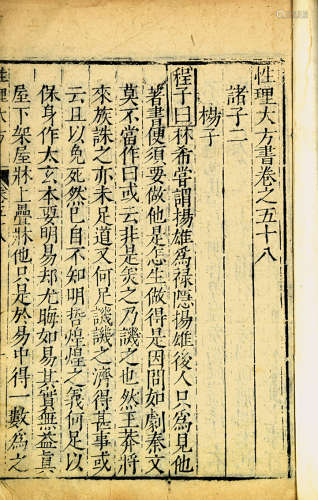 性理大方書卷之五十八
諸子二
楊子
程子曰林希嘗謂揚雄為祿隱揚雄後人只為見他
著書便須要做他是怎生做得是因問如劇秦文
莫不當作曰或云非是美之乃譏之也然王莽將
來族誅之亦未足道又何足譏譏之濟得甚事或
云且以免死然已自不知明哲煌煌之義何足以
保身作太玄本要明易却尤晦如易其實無益真
屋下架屋牀上疊牀他只是於易中得一數為之
性理大方